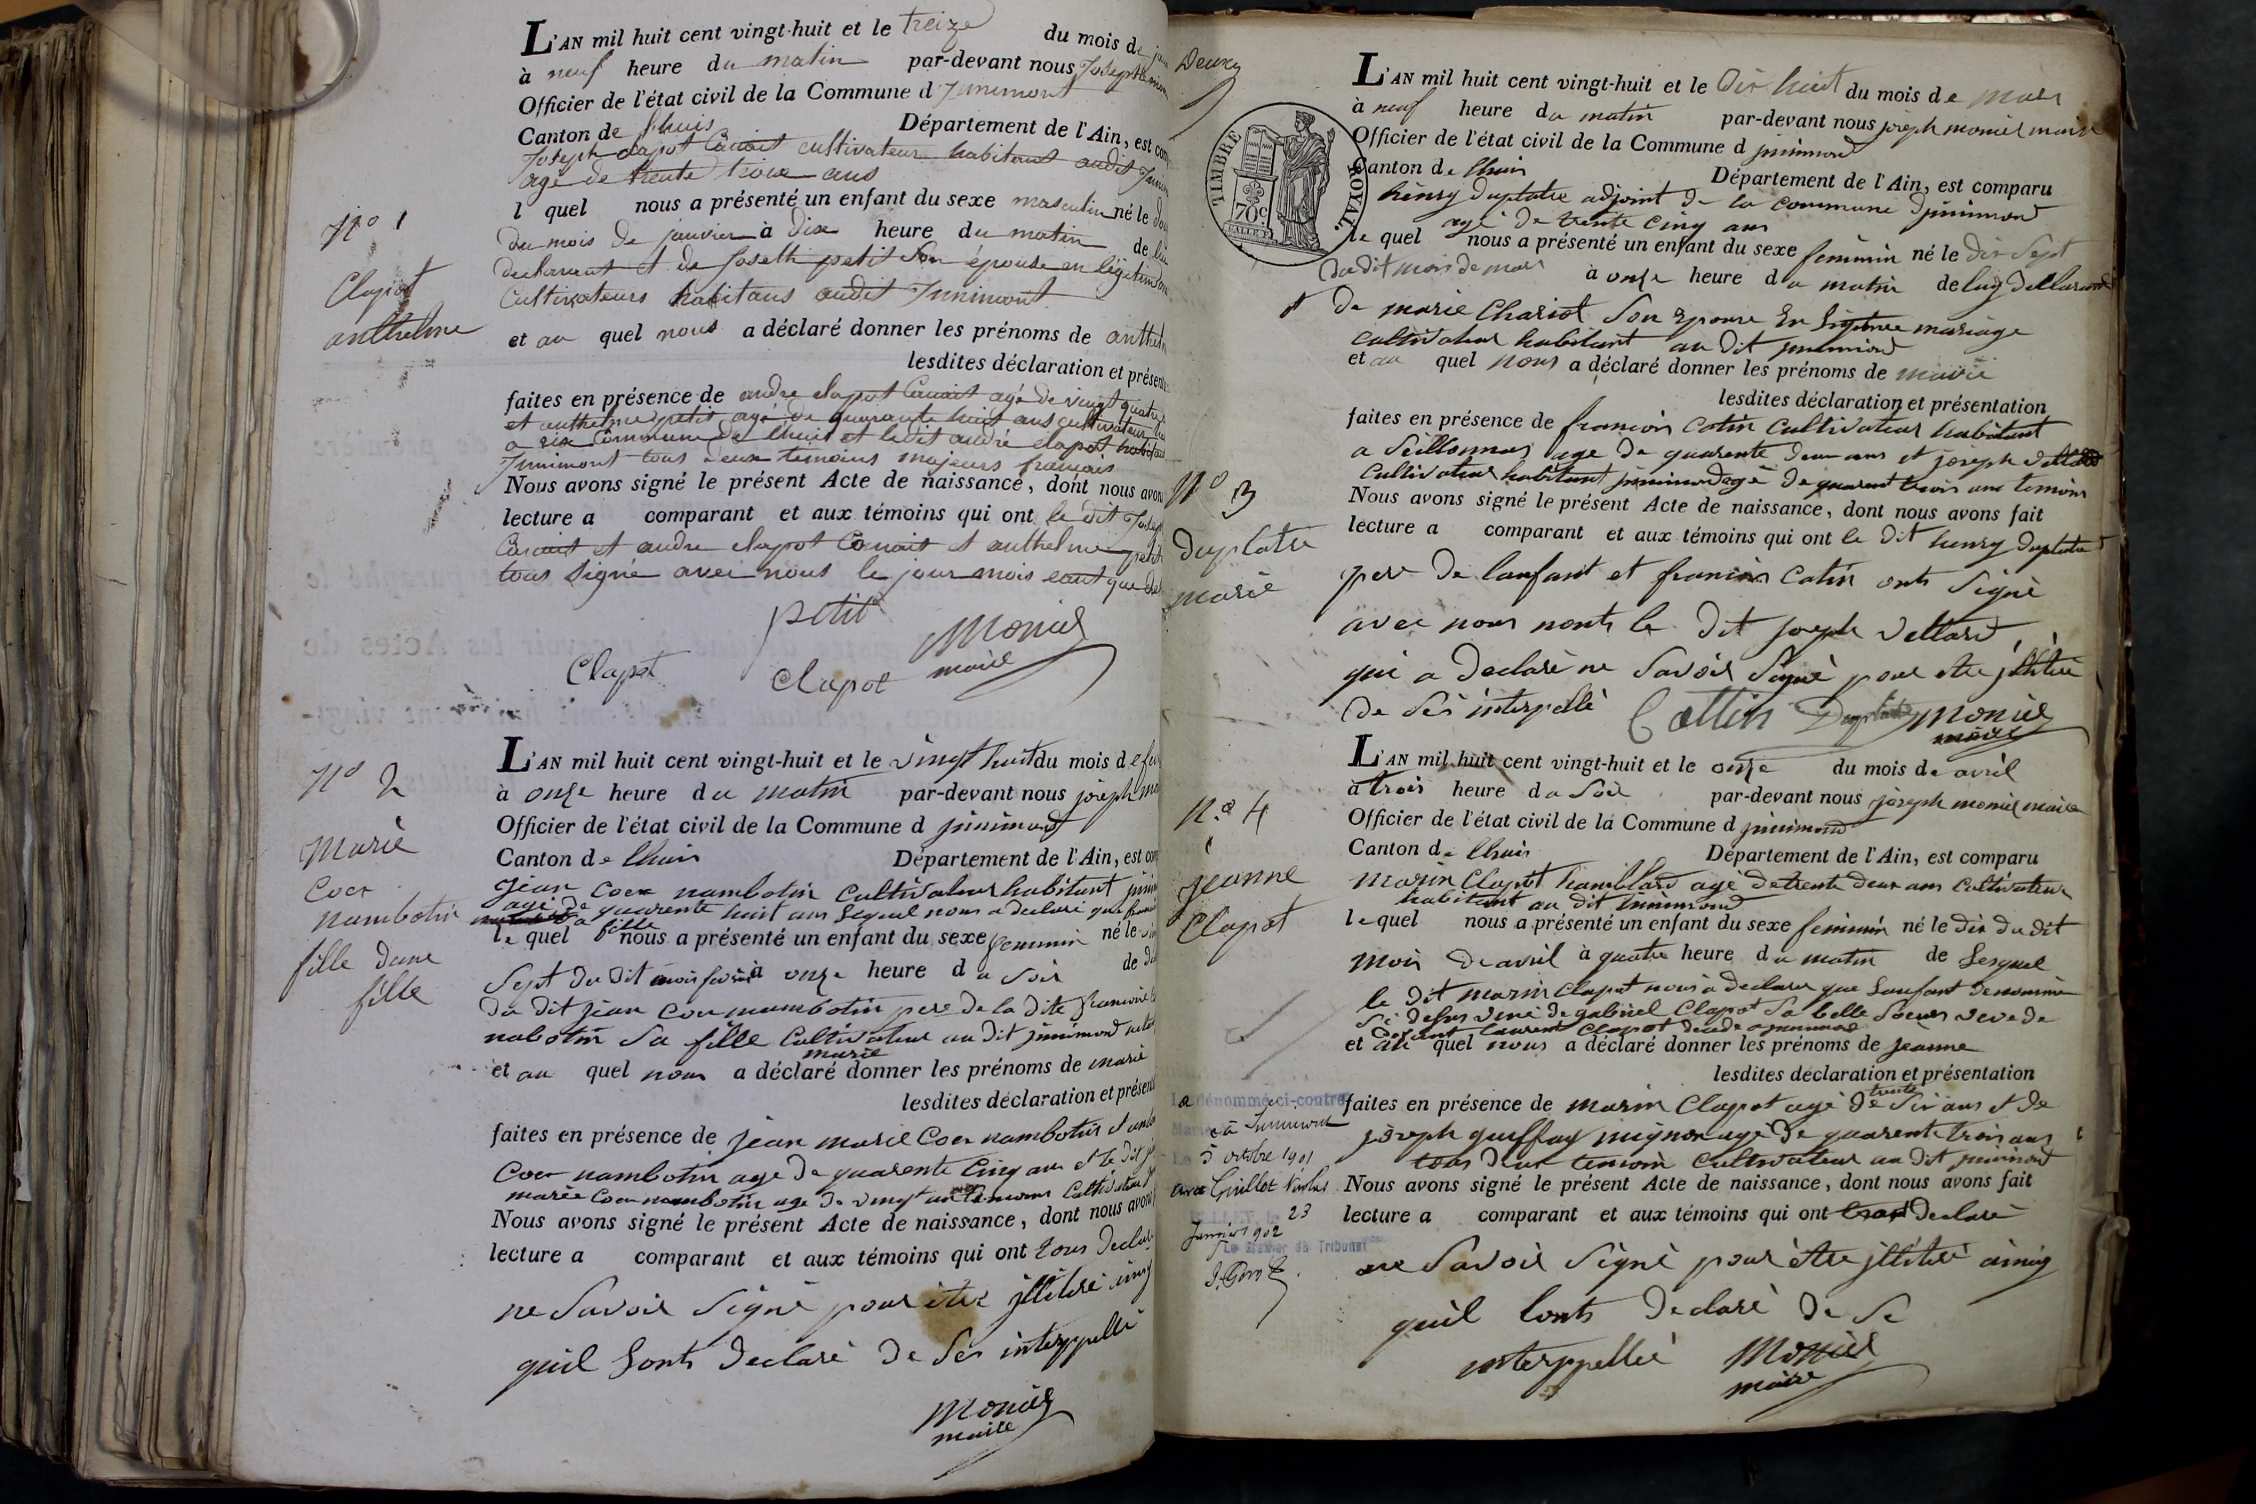 L'AN mil huit cent vingt-huit et le treize du mois de
à neuf heure du matin par-devant nous Joseph
Officier de l'état civil de la Commune d Junimont
Canton de lhuis Département de l'Ain, est
Joseph clapot Canait cultivateur habitant audit
agé de trente trois ans
l quel nous a présenté un enfant du sexe masculin né le
N° 1
du mois de janvier à dix heure du matin de
Clapot
declarant et de Joseth petit Son épouse en légitime
anthelme
Cultivateurs habitans audit Junimont
et au quel nous a déclaré donner les prénoms de
lesdites déclaration et
faites en présence de andre clapot Canait agé de vingt quatre
et anthelme petit agé de quarante huit ans cultivateur
a commune de lhuis et ledit andré clapot
Junimont tous deux temoins majeurs français
Nous avons signé le présent Acte de naissance, dont nous
lecture a comparant et aux témoins qui ont le dit
Canait et andre clapot Canait et anthelme petit
tous Signé avec nous le jour mois que
petit
Monier
maire
Clapot Clapot
L'AN mil huit cent vingt-huit et le vingt huit du mois de
N° 2
à onze heure du matin par-devant nous joseph
Officier de l'état civil de la Commune d junimond
Marie
Canton de lhuis Département de l'Ain, est
Coer
nambotin
fille dune
fille
jean Coer nambotin Cultivateur habitant
agé de quarente huit ans Lequel nous a declaré que
a fille
le quel nous a présenté un enfant du sexe feminin né le
Sept du dit mois à onze heure du Soir de
du dit jean Coer nambotin pere de la dite francoise
nabotin Sa fille Cultivateur au dit junimond
marie
et au quel nous a déclaré donner les prénoms de marie
lesdites déclaration et
faites en présence de jean marie Coer nambotin
Coer nambotin age de quarente Cinq ans et le dit
marie Coer nambotin age de vingt temoins Cultivateur
Nous avons signé le présent Acte de naissance, dont nous
lecture a comparant et aux témoins qui ont tous
ne Savoir Signé pour être jllitéré
quil Lonts declaré de Ses interppellé
Monier
maire
Deux
L'AN mil huit cent vingt-huit et le Dix huit du mois de mars
à neuf heure du matin par-devant nous joseph monier maire
TIMBRE ROYAL
70c
Officier de l'état civil de la Commune d junimond
Canton de lhuis Département de l'Ain, est comparu
henry duplatre adjoint de la commune djunimond
agé de trente cinq ans
le quel nous a présenté un enfant du sexe feminin né le dix Sept
du dit mois de mars à onze heure du matin de luy
de marie Chariot Son Epouse En mariage
cultivateur habitant au dit junimond
et au quel nous a déclaré donner les prénoms de marie
lesdites déclaration et présentation
faites en présence de francois Cotin Cultivateur habitant
a Seillonnas age de quarente deux ans et joseph
Cultivateur habitant junimond agé de quarent trois ans temoins
N° 3
duplatre
marie
Nous avons signé le présent Acte de naissance, dont nous avons fait
lecture a comparant et aux témoins qui ont le dit henry duplatre
pere de lanfant et francois Cotin onts Signé
avec nous nonts le dit joseph vettard
qui a declaré ne Savoir Signé pour etre jllitéré
de Ses interpellé Cottin Duplatre Monier
maire
L'AN mil huit cent vingt-huit et le onze du mois de avril
à trois heure du Soir par-devant nous joseph monier maire
N° 4
Officier de l'état civil de la Commune d junimond
Canton de lhuis Département de l'Ain, est comparu
jeanne
Clapot
marin Clapot agé de trente deux ans Cultivateur
habitant au dit junimond
le quel nous a présenté un enfant du sexe feminin né le dix du dit
mois de avril à quatre heure du matin de Lequel
le dit marin Clapot nous a declare que Lanfant denommé
Clapot Sa belle Soeur veve de
laurent Clapot
et au quel nous a déclaré donner les prénoms de jeanne
lesdites déclaration et présentation
faites en présence de marin Clapot agé de trente Six ans et de
joseph mignon agé de quarente trois ans
tous deux temoin Cultivateur au dit junimond
dénommé ci-contre
à Junimont
5 octobre 1901
avec Guillot
23
Janvier 1902
Tribunal
Nous avons signé le présent Acte de naissance, dont nous avons fait
lecture a comparant et aux témoins qui ont declaré
ne Savoir Signé pour être jllitéré
quil Lonts declaré de Se
interppellé Monier
maire